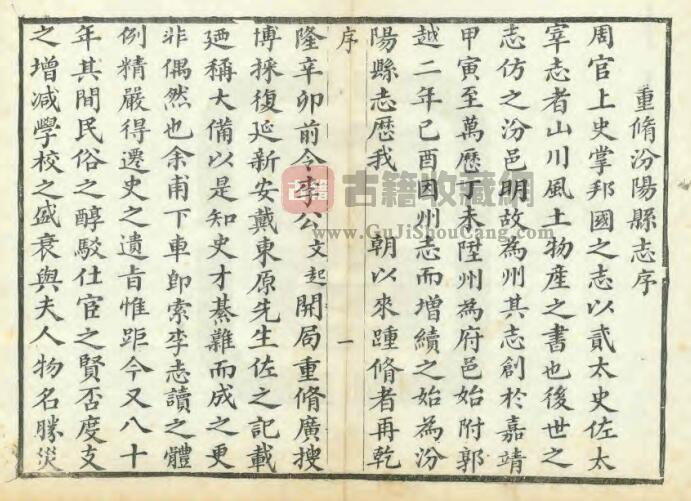 重脩汾陽縣志序
周官上史掌邦國之志以貳太史佐太
宰志者山川風土物産之書也後世之
志仿之汾邑明故為州其志創於嘉靖
甲寅至萬歷丁未陞州為府邑始附郭
越二年己酉因州志而增續之始為汾
陽縣志歷我 朝以來踵脩者再乾
序
一
隆辛卯前令李公文起開局重脩廣搜
博採復延新安戴東原先生佐之記載
廼稱大備以是知史才綦難而成之更
非偶然也余甫下車卽索李志讀之體
例精嚴得遷史之遺旨惟距今又八十
年其間民俗之醇駁仕宦之賢否度支
之增減學校之盛衰與夫人物名勝災
古籍收藏網
www.GuJiShouCang.com